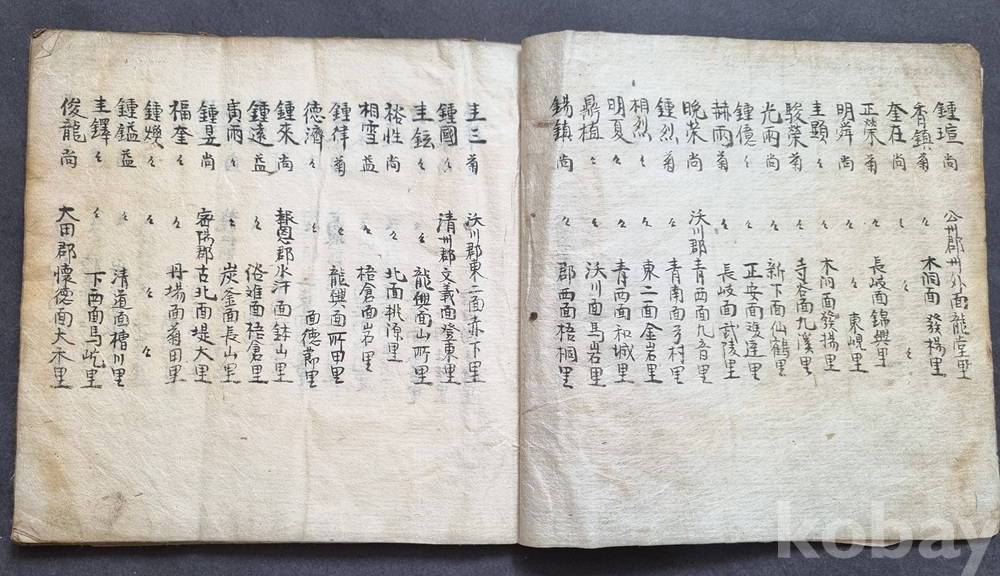 鍾瑄 尚 公州郡州外面龍堂里
香鎭 菊 々 木洞面發揚里
奎在 尚 々 々 々
正榮 菊 々 長岐面錦興里
明舜 尚 々 々 東峴里
圭顯 々 々 木洞面發揚里
駿榮 菊 々 寺谷面九溪里
光雨 尚 々 新下面仙鶴里
鍾億 々 々 正安面雙達里
赫雨 菊 々 長岐面武陵里
晩榮 尚 沃川郡青西面九音里
鍾烈 菊 々 青南面弓村里
相烈 々 々 東二面金岩里
明夏 々 々 青西面和城里
鼎植 々 々 沃川面馬岩里
錫鎭 尚 々 郡西面梧桐里
圭三 菊 沃川郡東二面赤下里
鍾國 々 清州郡文義面登東里
圭鉉 々 々 龍興面山所里
裕性 尚 々 北面桃源里
相雪 益 々 梧倉面岩里
鍾律 菊 々 龍興面所田里
德濟 々 々 面德節里
鍾來 尚 報恩郡水汗面鉢山里
鍾遠 益 々 俗離面梧倉里
寅雨 々 々 炭釜面長山里
鍾昱 尚 密陽郡古北面堤大里
福奎 々 々 丹場面菊田里
鍾爕 々 々 々 々
鍾鎰 益 々 清道面檜川里
圭鐸 々 々 下西面馬屹里
俊龍 尚 大田郡懷德面大禾里
kobay